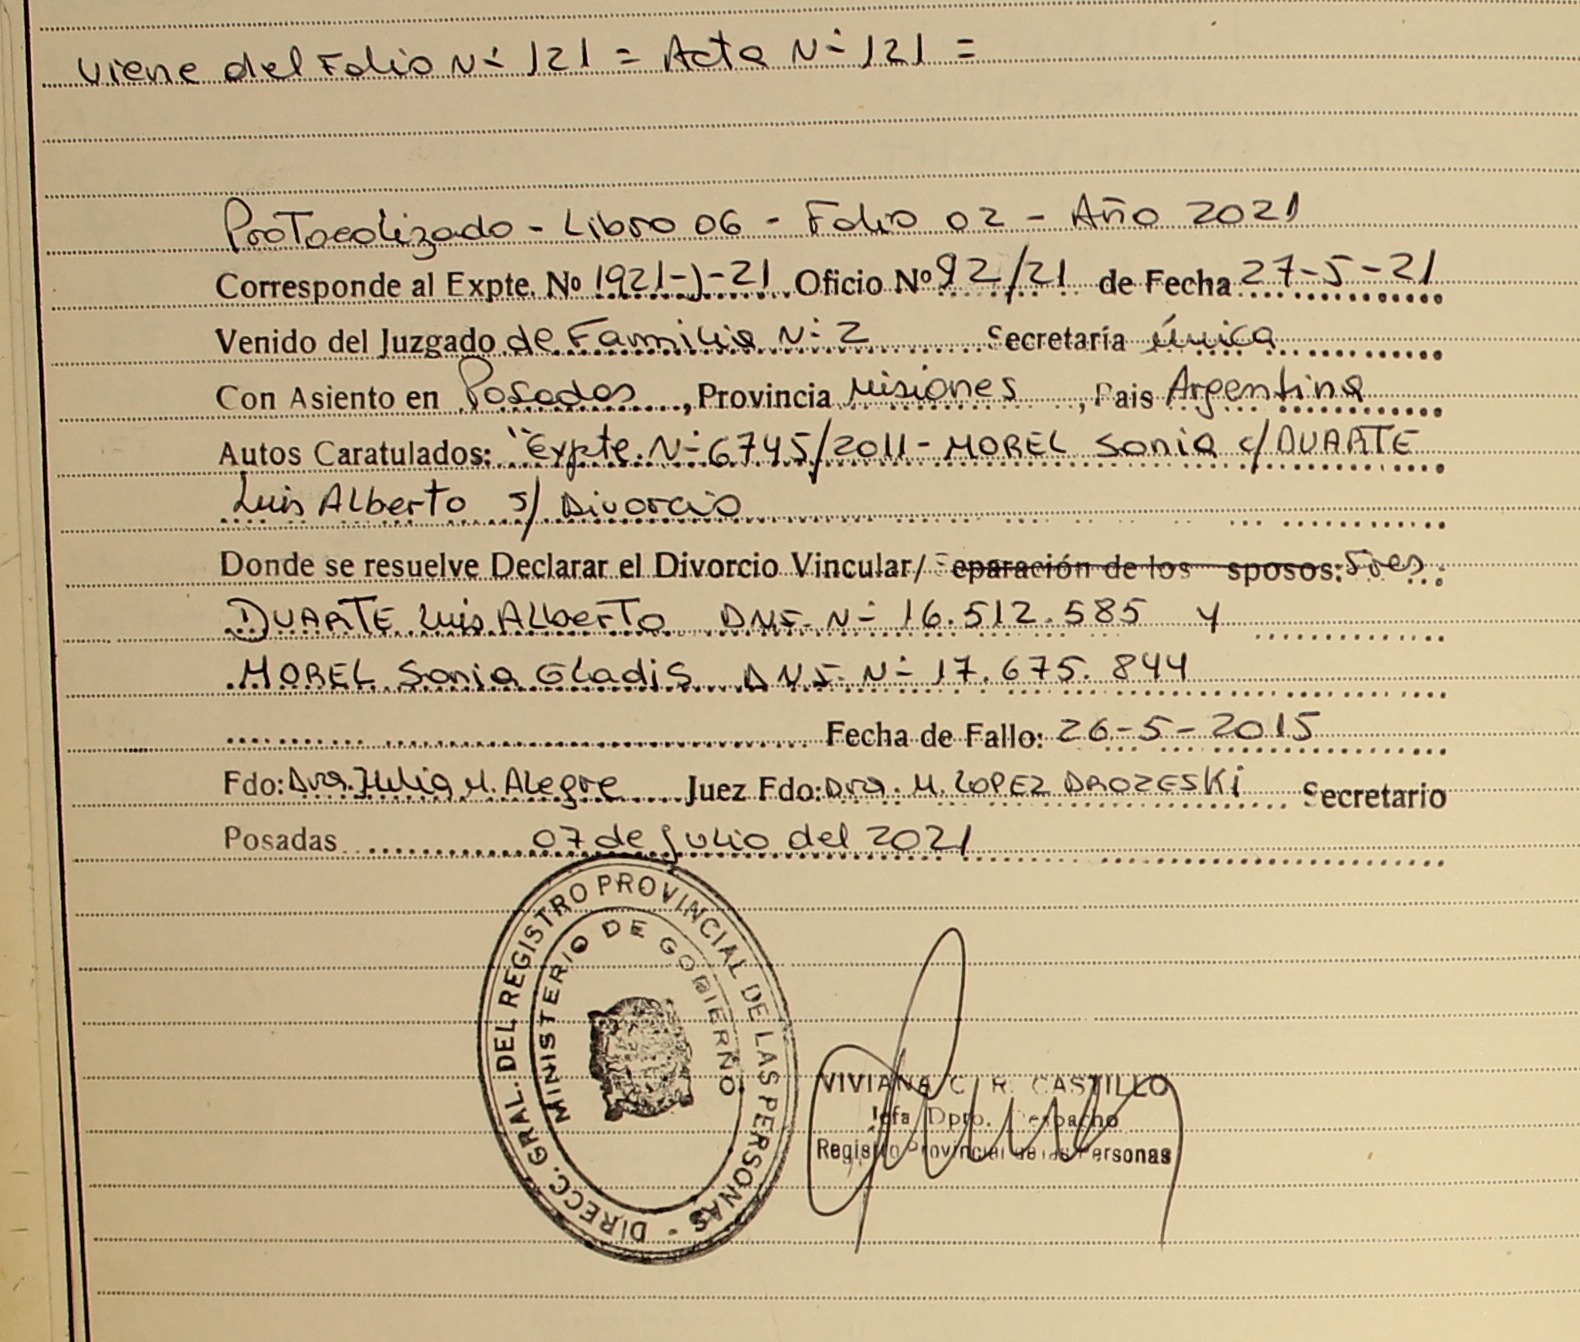 viene del Folio Nº 121 = Acta Nº 121 =
Protocolizado - Libro 06 - Folio 02 - Año 2021
Corresponde al Expte. No 1921-J-21 Oficio Nº 92/21 de Fecha 27-5-21
Venido del Juzgado de Familia Nº 2 Secretaría Única
Con Asiento en Posadas, Provincia Misiones, Pais Argentina
Autos Caratulados: "Expte. Nº 6745/2011 - MOREL Sonia c/ DUARTE
Luis Alberto s/ Divorcio
Donde se resuelve Declarar el Divorcio Vincular/ eparación de los sposos: Sres.
DUARTE Luis Alberto DNI. Nº 16.512.585 y
MOREL Sonia Gladis DNI. Nº 17.675.844
Fecha de Fallo: 26-5-2015
Fdo: Dra. Julia M. Alegre Juez Fdo: Dra. M. LOPEZ DROZESKI Secretario
Posadas 07 de Julio del 2021
DIRECC. GRAL. DEL REGISTRO PROVINCIAL DE LAS PERSONAS -
MINISTERIO DE GOBIERNO
VIVIANA C. R. CASTILLO
Jefa Dpto. Despacho
Registro Provincial de las Personas